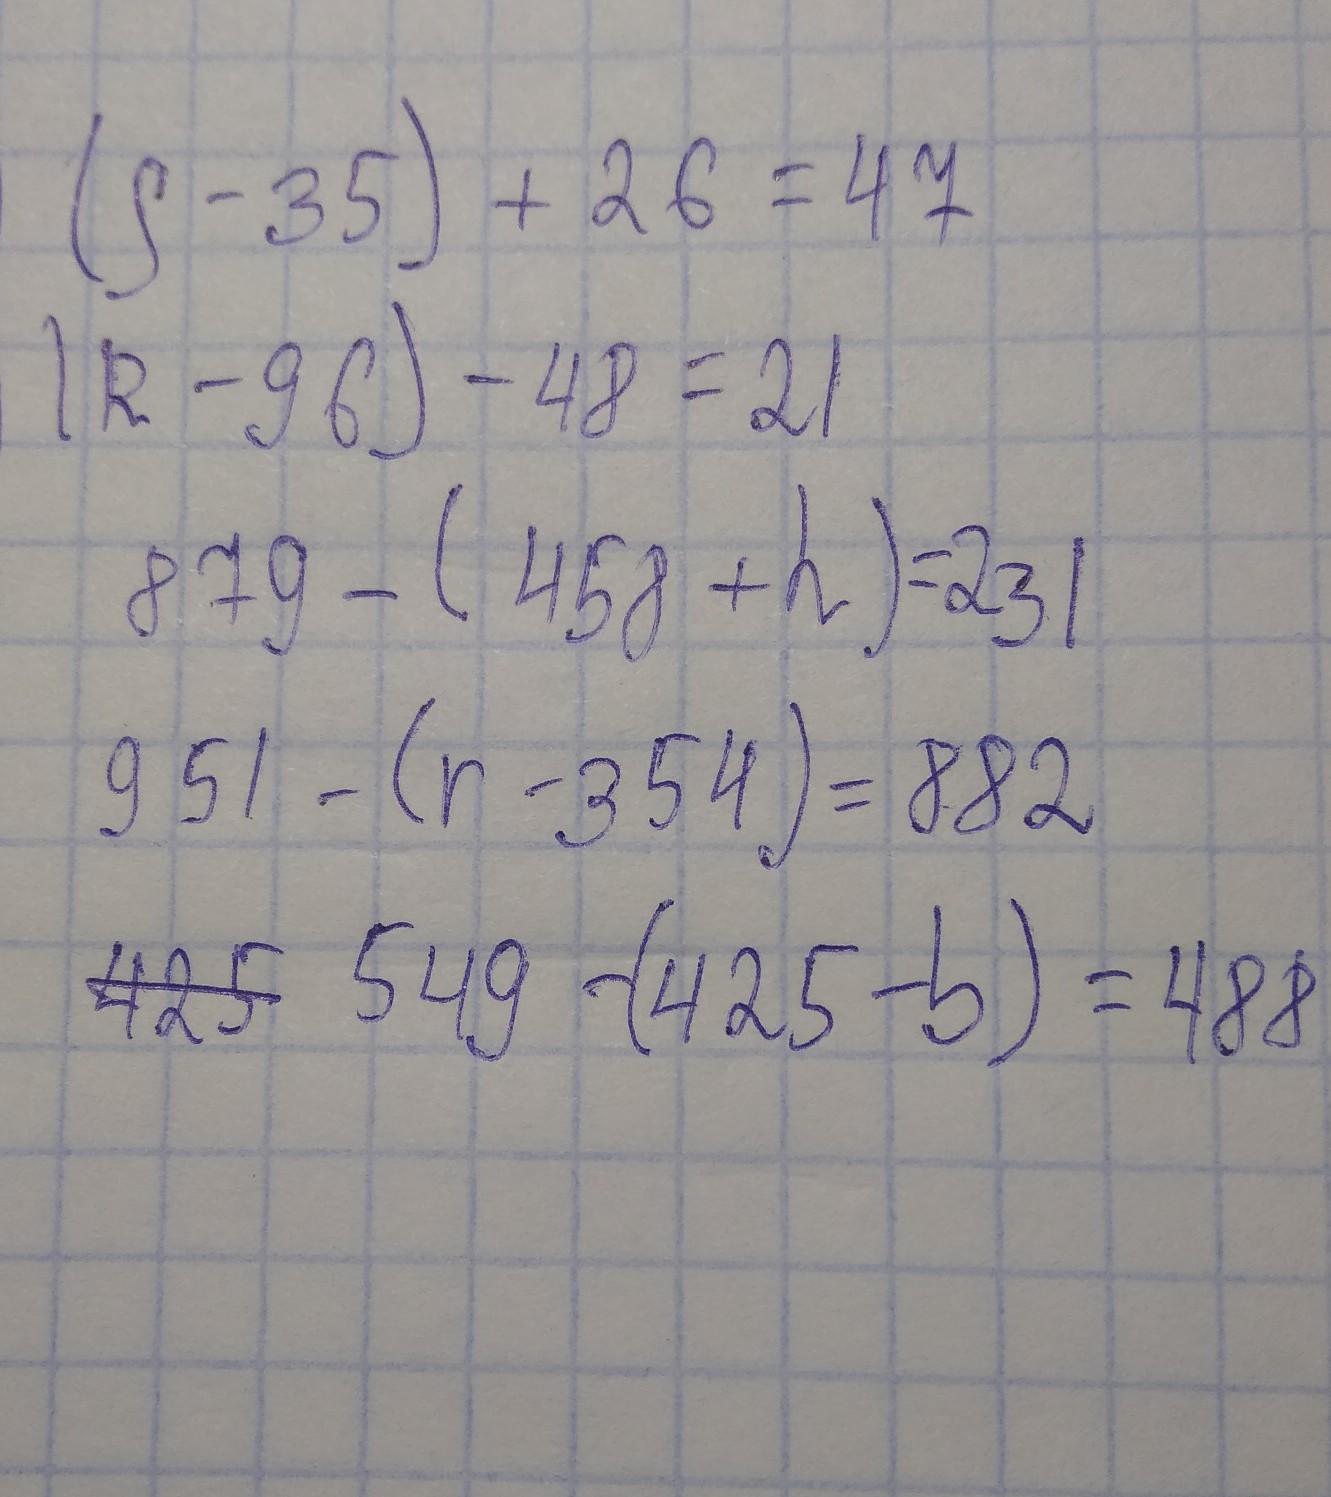 (f - 35) + 26 = 47
(k - 96) - 48 = 21
879 - (458 + h) = 231
951 - (r - 354) = 882
425 549 - (425 - b) = 488